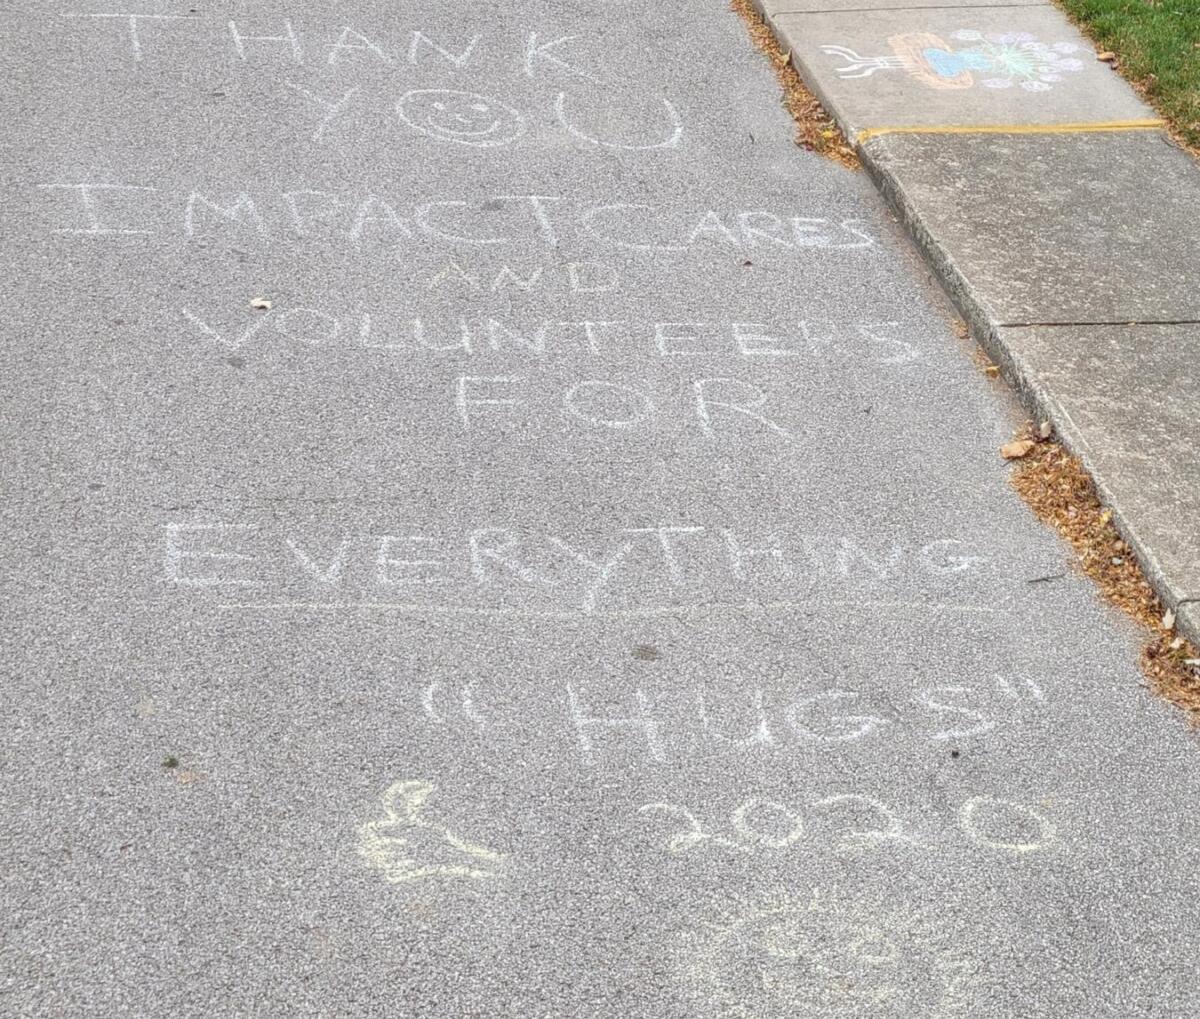 THANK
YOU
IMPACTCARES
AND
VOLUNTEERS
FOR
EVERYTHING
"HUGS"
2020